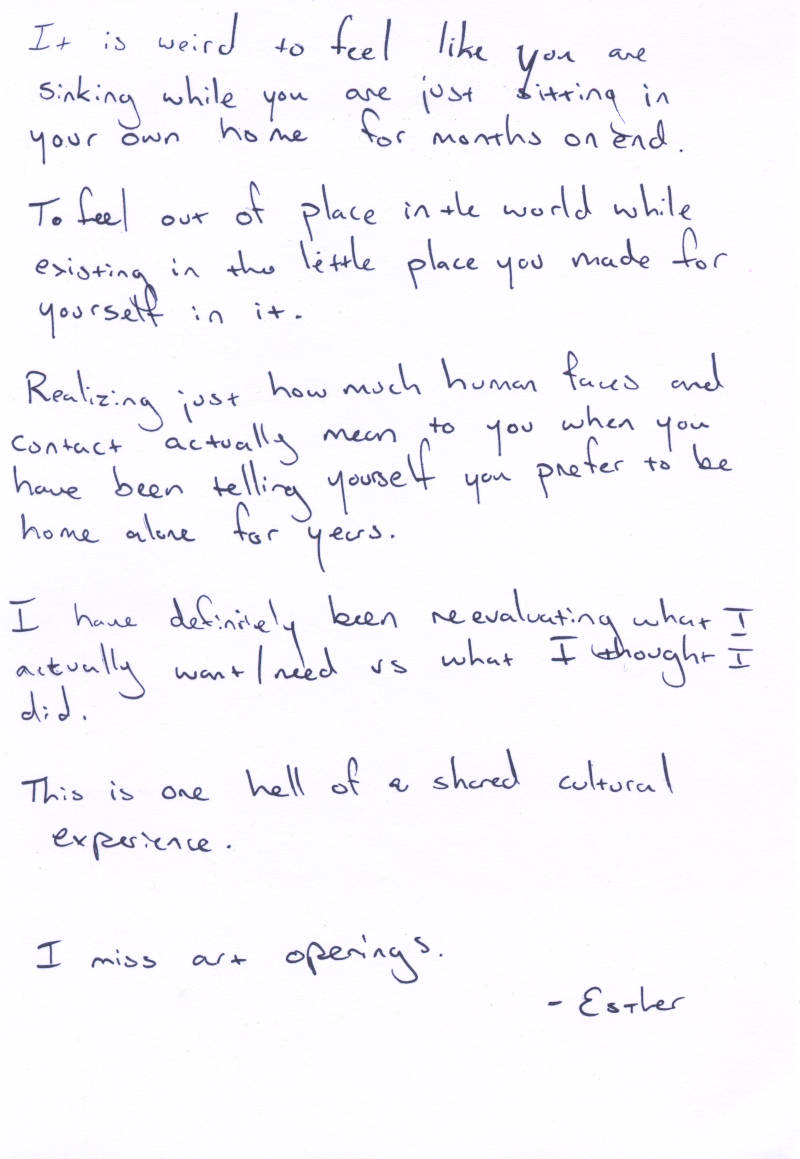 It is weird to feel like you are
sinking while you are just sitting in
your own home for months on end.
To feel out of place in the world while
existing in the little place you made for
yourself in it.
Realizing just how much human faces and
contact actually mean to you when you
have been telling yourself you prefer to be
home alone for years.
I have definitely been reevaluating what I
actually want/need vs what I thought I
did.
This is one hell of a shared cultural
experience.
I miss art openings.
- Esther